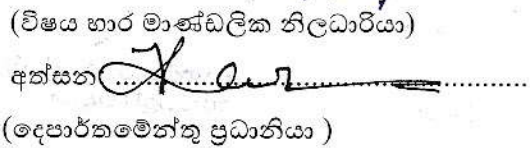 (විෂය භාර මාණ්ඩලික නිලධාරියා)
අත්සන ................................................
(දෙපාර්තමේන්තු ප්‍රධානියා )